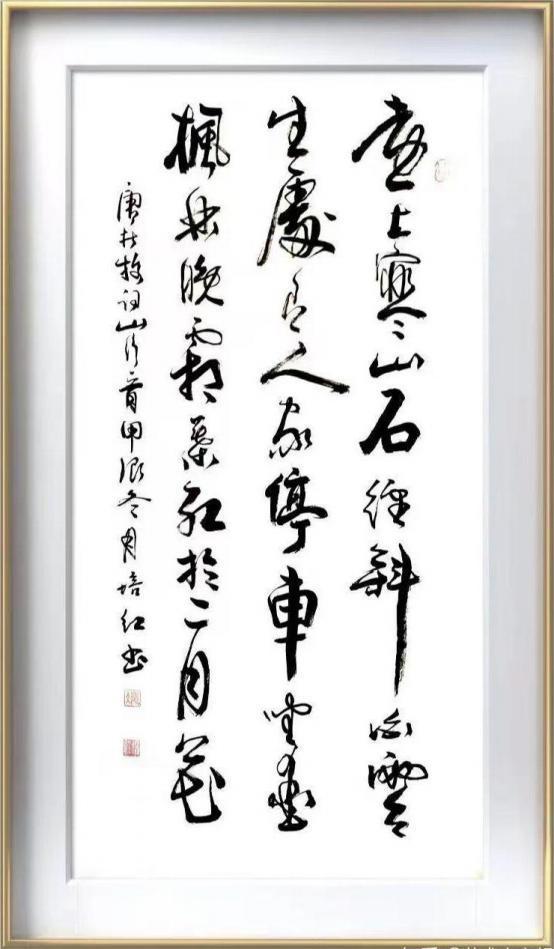 遠上寒山石徑斜白雲
生處有人家停車坐愛
楓林晚霜葉紅於二月花
唐杜牧詩山行一首甲辰冬月培紅書